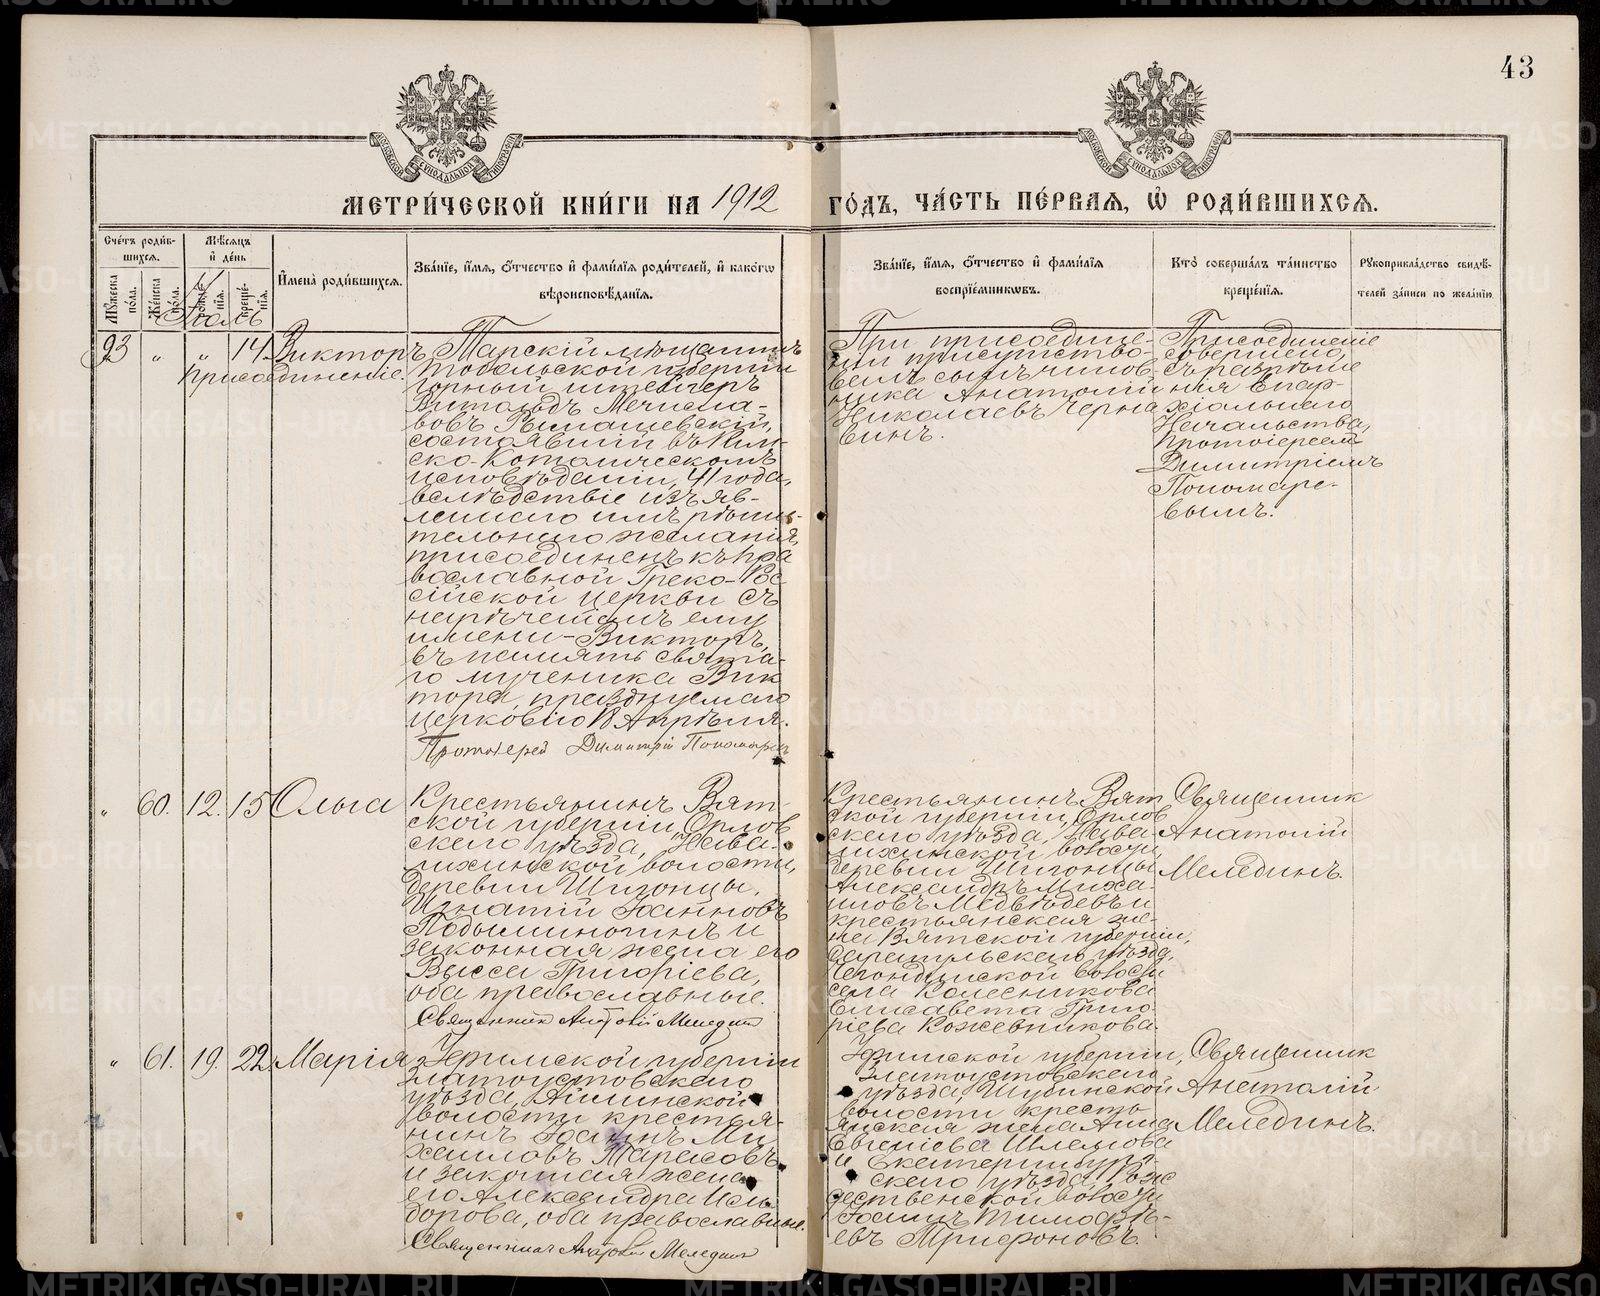 43
МЕТРИ́ЧЕСКОЙ КНИ́ГИ НА 1912 ГО́ДЪ, ЧА́СТЬ ПЕ́РВАЯ, Ѡ҆ РОДИ́ВШИХСЯ.
Сче́тъ роди́в-
шихся.
Му́жеска по́ла.
Же́нска по́ла.
Мѣ́сяцъ
и҆ де́нь
рожде́нія.
креще́-
нія.
И҆мена̀ роди́вшихся.
Зва́нїе, и҆́мя, ѻ҆́тчество и҆ фами́лїя роди́телей, и҆ како́гѡ
вѣроисповѣ́данїя.
Зва́нїе, и҆́мя, ѻ҆́тчество и҆ фами́лїя
воспрїе́мникѡвъ.
Кто̀ соверша́лъ та́инство
креще́нїя.
Рꙋкоприкла́дство свидѣ́-
телей за́писи по жела́нїю.
Іюль
93 " " 14. Викторъ,
присоединеніе.
Тарскій мѣщанинъ
Тобольской губерніи
горный штейгеръ
Витольдъ Мечисла-
вовъ Римашевскій,
состоявшій въ Рим-
ско-Католическомъ
исповѣданіи, 41 года,
вслѣдствіе изъяв-
леннаго имъ рѣши-
тельнаго желанія,
присоединенъ къ Пра
вославной Греко-Рос
сійской церкви съ
нареченіемъ ему
имени-Викторъ,
въ память свята-
го мученика Вик
тора, празднуемаго
церковію 18 Апрѣля.
Протоіерей Димитрій Пономаревъ
При присоедине-
ніи присутство-
валъ сынъ чинов-
ника Анатолій
Николаевъ Черна
винъ.
Присоединеніе
совершено,
съ разрѣше
нія Епар-
хіальнаго
Начальства,
Протоіереемъ
Димитріемъ
Пономаре-
вымъ.
" 60. 12. 15 Ольга
Крестьянинъ Вят-
ской губерніи, Орлов
скаго уѣзда,
лихинской волости,
деревни Шигонцы,
Игнатій Іоанновъ
и
законная жена его
Васса Григоріева,
оба православные.
Священникъ Анатолій Меледин
Крестьянинъ Вят
ской губерніи, Орлов
скаго уѣзда,
лихинской волости
деревни Шигонцы
Александръ Миха-
иловъ Медвѣдевъ и
крестьянская же-
на Вятской губерніи,
Сарапульскаго уѣзда,
волости
села Колесникова
Елисавета Григо-
ріева Кожевникова.
Священник
Анатолій
Мелединъ.
" 61. 19. 22. Марія
Уфимской губерніи
Златоустовскаго
уѣзда, Айлинской
волости крестья-
нинъ Іоаннъ Ми
хаиловъ Тарасовъ
и законная жена
его Александра Иси
дорова, оба православные.
Священник Анатолій Меледин
Уфимской губерніи,
Златоустовскаго
уѣзда, Шубинской
волости кресть
янская жена Анна
Евгеніева Шлемова
и Екатеринбург-
скаго уѣзда, Рож
дественской волости
Іоаннъ Тимофѣ-
евъ Трифоновъ.
Священник
Анатолій
Мелединъ.
METRIKI.GASO-URAL.RU